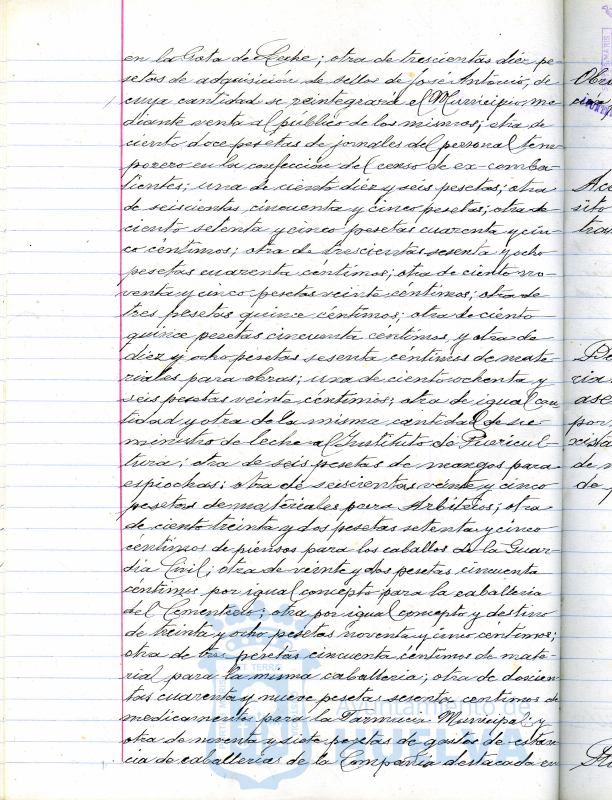 en la Gota de Leche; otra de trescientas diéz pe-
setas de adquisición de sellos de José Antonio, de
cuya cantidad se reintegrará el Municipio me
diante venta al público de los mismos; otra de
ciento doce pesetas de jornales del personal tem
porero en la confección del censo de ex-comba-
tientes; una de ciento diez y seis pesetas; otra
de seiscientos cincuenta y cinco pesetas; otra de
ciento setenta y cinco pesetas cuarenta y cin
co céntimos; otra de trescientas sesenta y ocho
pesetas cuarenta céntimos; otra de ciento no-
venta y cinco pesetas veinte céntimos; otra de
tres pesetas quince céntimos; otra de ciento
quince pesetas cincuenta céntimos, y otra de
diez y ocho pesetas sesenta céntimos de mate-
riales para obras; una de ciento ochenta y
seis pesetas veinte céntimos; otra de igual can
tidad y otra de la misma cantidad de su
ministro de leche al Instituto de Puericul-
tura; otra de seis pesetas de mangos para
espiochas; otra de seiscientas veinte y cinco
pesetas de materiales para Arbitrios; otra
de ciento treinta y dos pesetas setenta y cinco
céntimos de piensos para los caballos de la Guar
dia Civil; otra de veinte y dos pesetas cincuenta
céntimos por igual concepto para la caballeria
del Cementerio; otra por igual concepto y destino
de treinta y ocho pesetas noventa y cinco céntimos;
otra de tres pesetas cincuenta céntimos de mate-
rial para la misma caballeria; otra de doscien
tas cuarenta y nueve pesetas sesenta centimos de
medicamentos para la Farmacia Municipal y
otra de noventa y siete pesetas de gastos de estan
cia de caballerias de la Compañia destacada en
Ayuntamiento de
HUELVA